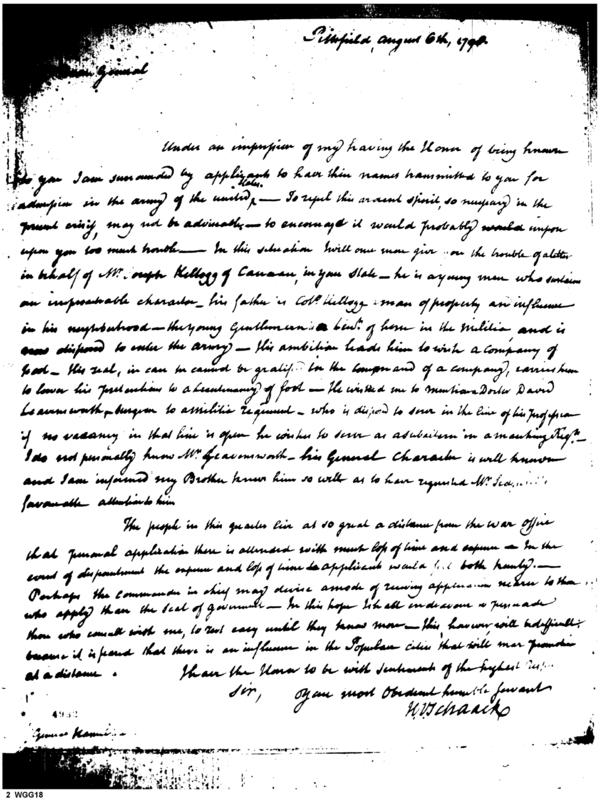 Pittsfield, August 6th, 1798.
Dear General
Under an impression of my having the Honor of being known
to you I am surrounded by applicants to have their names transmitted to you for
admission in the army of the united States. — To repel this ardent spirit, so necessary in the
present crisis, may not be adviseable — to encourage it would probably would impose
upon you too much trouble — In this situation I will once more give you the trouble of a letter
in behalf of Mr. Joseph Kellogg of Canaan, in your State — he is a young man who sustains
an irreproachable character — his father is Colo. Kellogg a man of property and influence
in his neighborhood — the young Gentleman is a Lieut. of horse in the Militia, and is
now disposed to enter the army — His ambition leads him to wish a Company of
foot — His zeal, in case he cannot be gratified in the command of a company, carries him
to lower his pretentions to a Lieutenancy of foot — He wished me to mention Doctor David
Leavensworth — Surgeon to a Militia regiment — who is disposed to serve in the line of his profession
if no vacancy in that line is open he wishes to serve as a subaltern in a marching Regt. —
I do not personally know Mr. Leavensworth — his General Character is well known
and I am informed my Brother knows him so well as to have requested Mr.
favourable attention to him
The people in this quarter live at so great a distance from the war office
that personal application there is attended with much loss of time and expence — In the
event of disappointment the expence and loss of time to applicants would both heavily. —
Perhaps the Commander in chief may devise a mode of receiving application nearer to those
who apply than the Seat of government — In this hope I shall endeavour to persuade
those who consult with me, to rest easy until they know more — this, however will be difficult
because it is feared that there is an influence in the Populous cities that will mar promotion
at a distance. I have the Honor to be with sentiments of the highest
Sir, Your most Obedient humble Servant
H V Schaack
General
2 WGG18